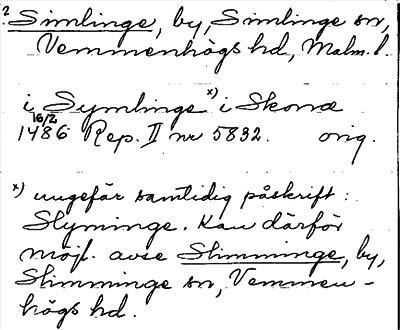 ? Simlinge, by, Simlinge sn,
Vemmenhögs hd, Malm. l.
i Symlinge x) i Skonæ
1486 16/2 Rep. II nr 5832. orig.
x) ungefär samtidig påskrift:
Slyminge. Kan därför
möjl. avse Slimminge, by,
Slimminge sn, Vemmen-
högs hd.